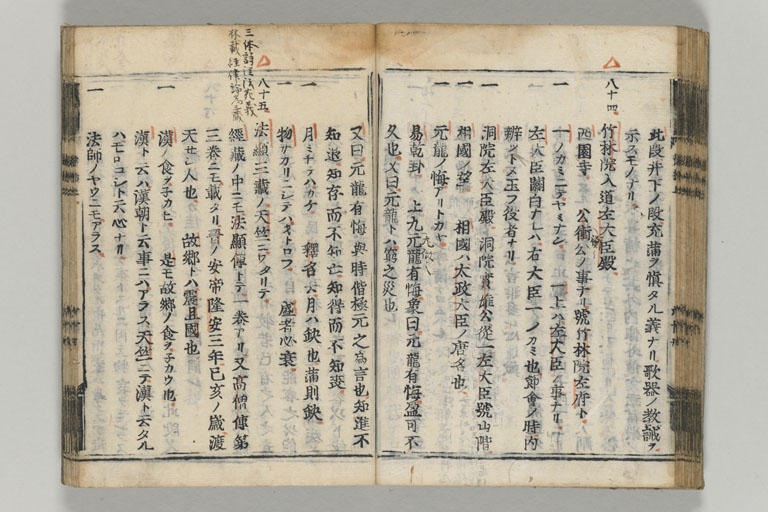 此段并下ノ段充蒲ヲ慎タル義ナリ歌器ノ教誡ヲ
示スモノナリ
八十四
竹林院入道左大臣殿
西園寺 公衡公ノ事ナリ號竹林院左府ト
一 一ノカミニテヤミナン 一上ハ左大臣ノ事ナリ
左大臣關白ナレハ右大臣一ノカミ也節會ノ時内
辨ツトメ玉フ役者ナリ
一 洞院左大臣殿 洞院實雄公從一左大臣號山階
一 相國ノ望 相國ハ太政大臣ノ唐名也
一 亢龍ノ悔アリトカヤ
易乾卦 上九亢龍有悔象曰亢龍有悔盈可不
久也又曰亢龍トハ窮之災也
又曰亢龍有悔與時偕極亢之為言也知進不
知退知存而不知亡知得而不知喪
一 月ミチテハカケ 釋名云月ハ缺也滿則缺
一 物サカリニシテハオトロフ 盛者必衰
三体詩注法
八十五
法顯三藏ノ天竺ニワタリテ
經藏ノ中ニモ法顯傳トテ一巻アリ又高僧傳第
三巻ニモ載タリ晋ノ安帝隆安三年己亥ノ歳渡
天セシ人也 故郷トハ震旦國也
一 漢ノ食ヲネカヒ 是モ故郷ノ食ヲネカウ也
漢ト云ハ漢朝ト云事ニハアラス天竺ニテ漢ト云タル
ハモロコシト云心ナリ
一 法師ノヤウニモアラス